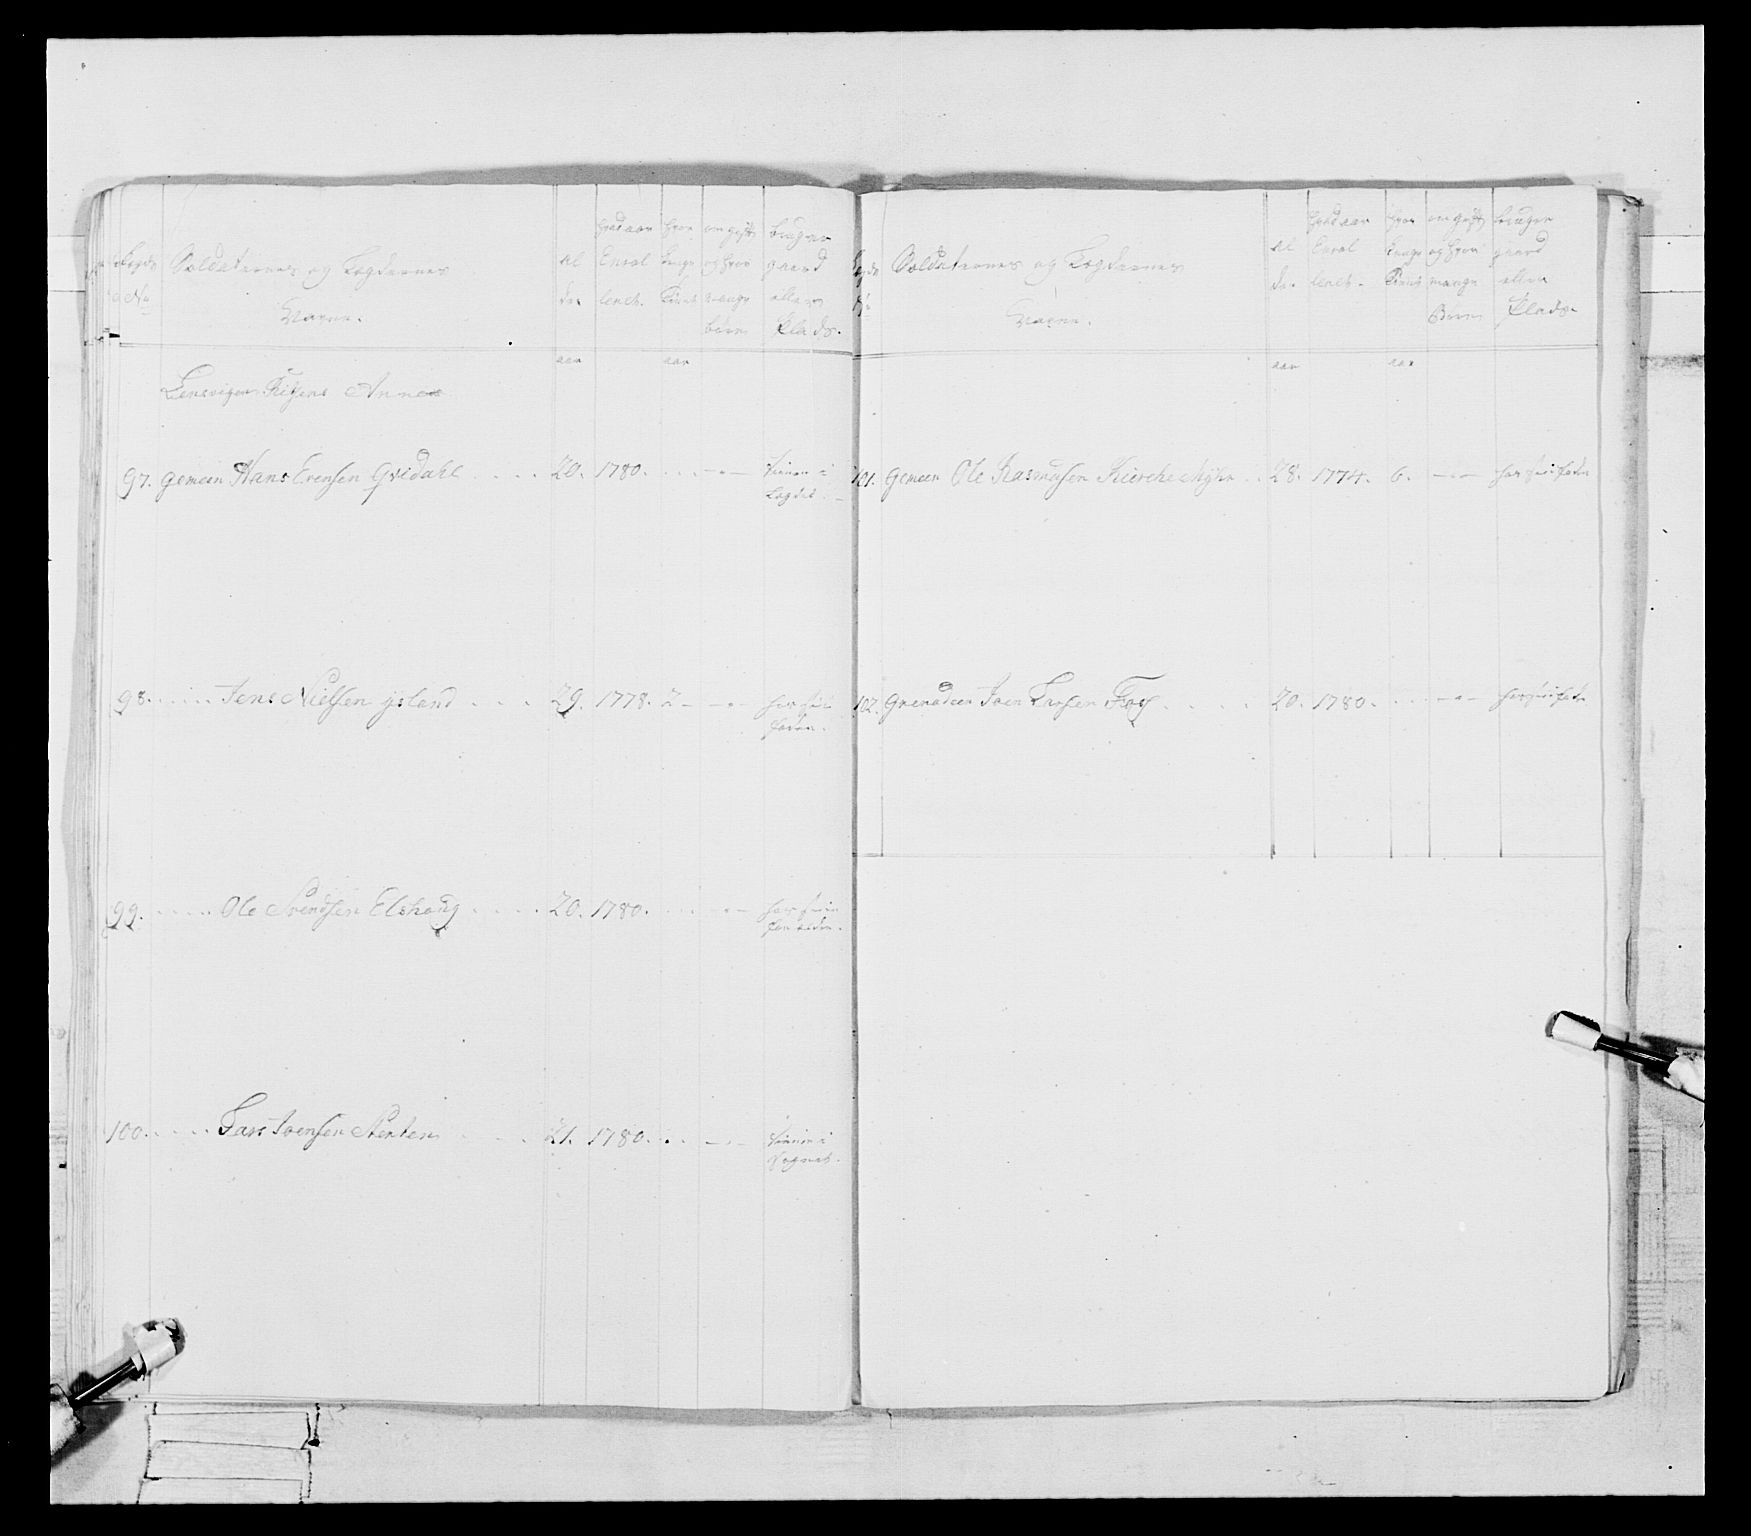 Soldaternes og Lægdernes
Navne.
Al
der
hvad aar
Enrol
leret.
hvor
længe
tient
om gift
og hvor
mange
børn
bruger
gaard
eller
Plads.
aar
aar
Annex
97. Gemeen Hans Evensen Gvedahl 20. 1780. - - tiener i
Lægdet
98. Jens Nielsen ysland 29. 1778. 2 - - hos sin
fader.
99. Ole Svendsen Elshoug 20. 1780. - - hos sine
100. Lars Joensen 21. 1780. - - tiener i
Sognet.
Soldaternes og Lægdernes
Navne.
Al
der.
hvad aar
Enrol
leret.
hvor
længe
tient
om gift
og hvor
mange
Børn
bruger
gaard
eller
Plads.
aar
aar
101. Gemeen Ole Rasmusen Kierche Myhr 28. 1774. 6. - - hos sin fader
102. Grenadeer Joen Larsen Foss 20. 1780. - - hos sin fader